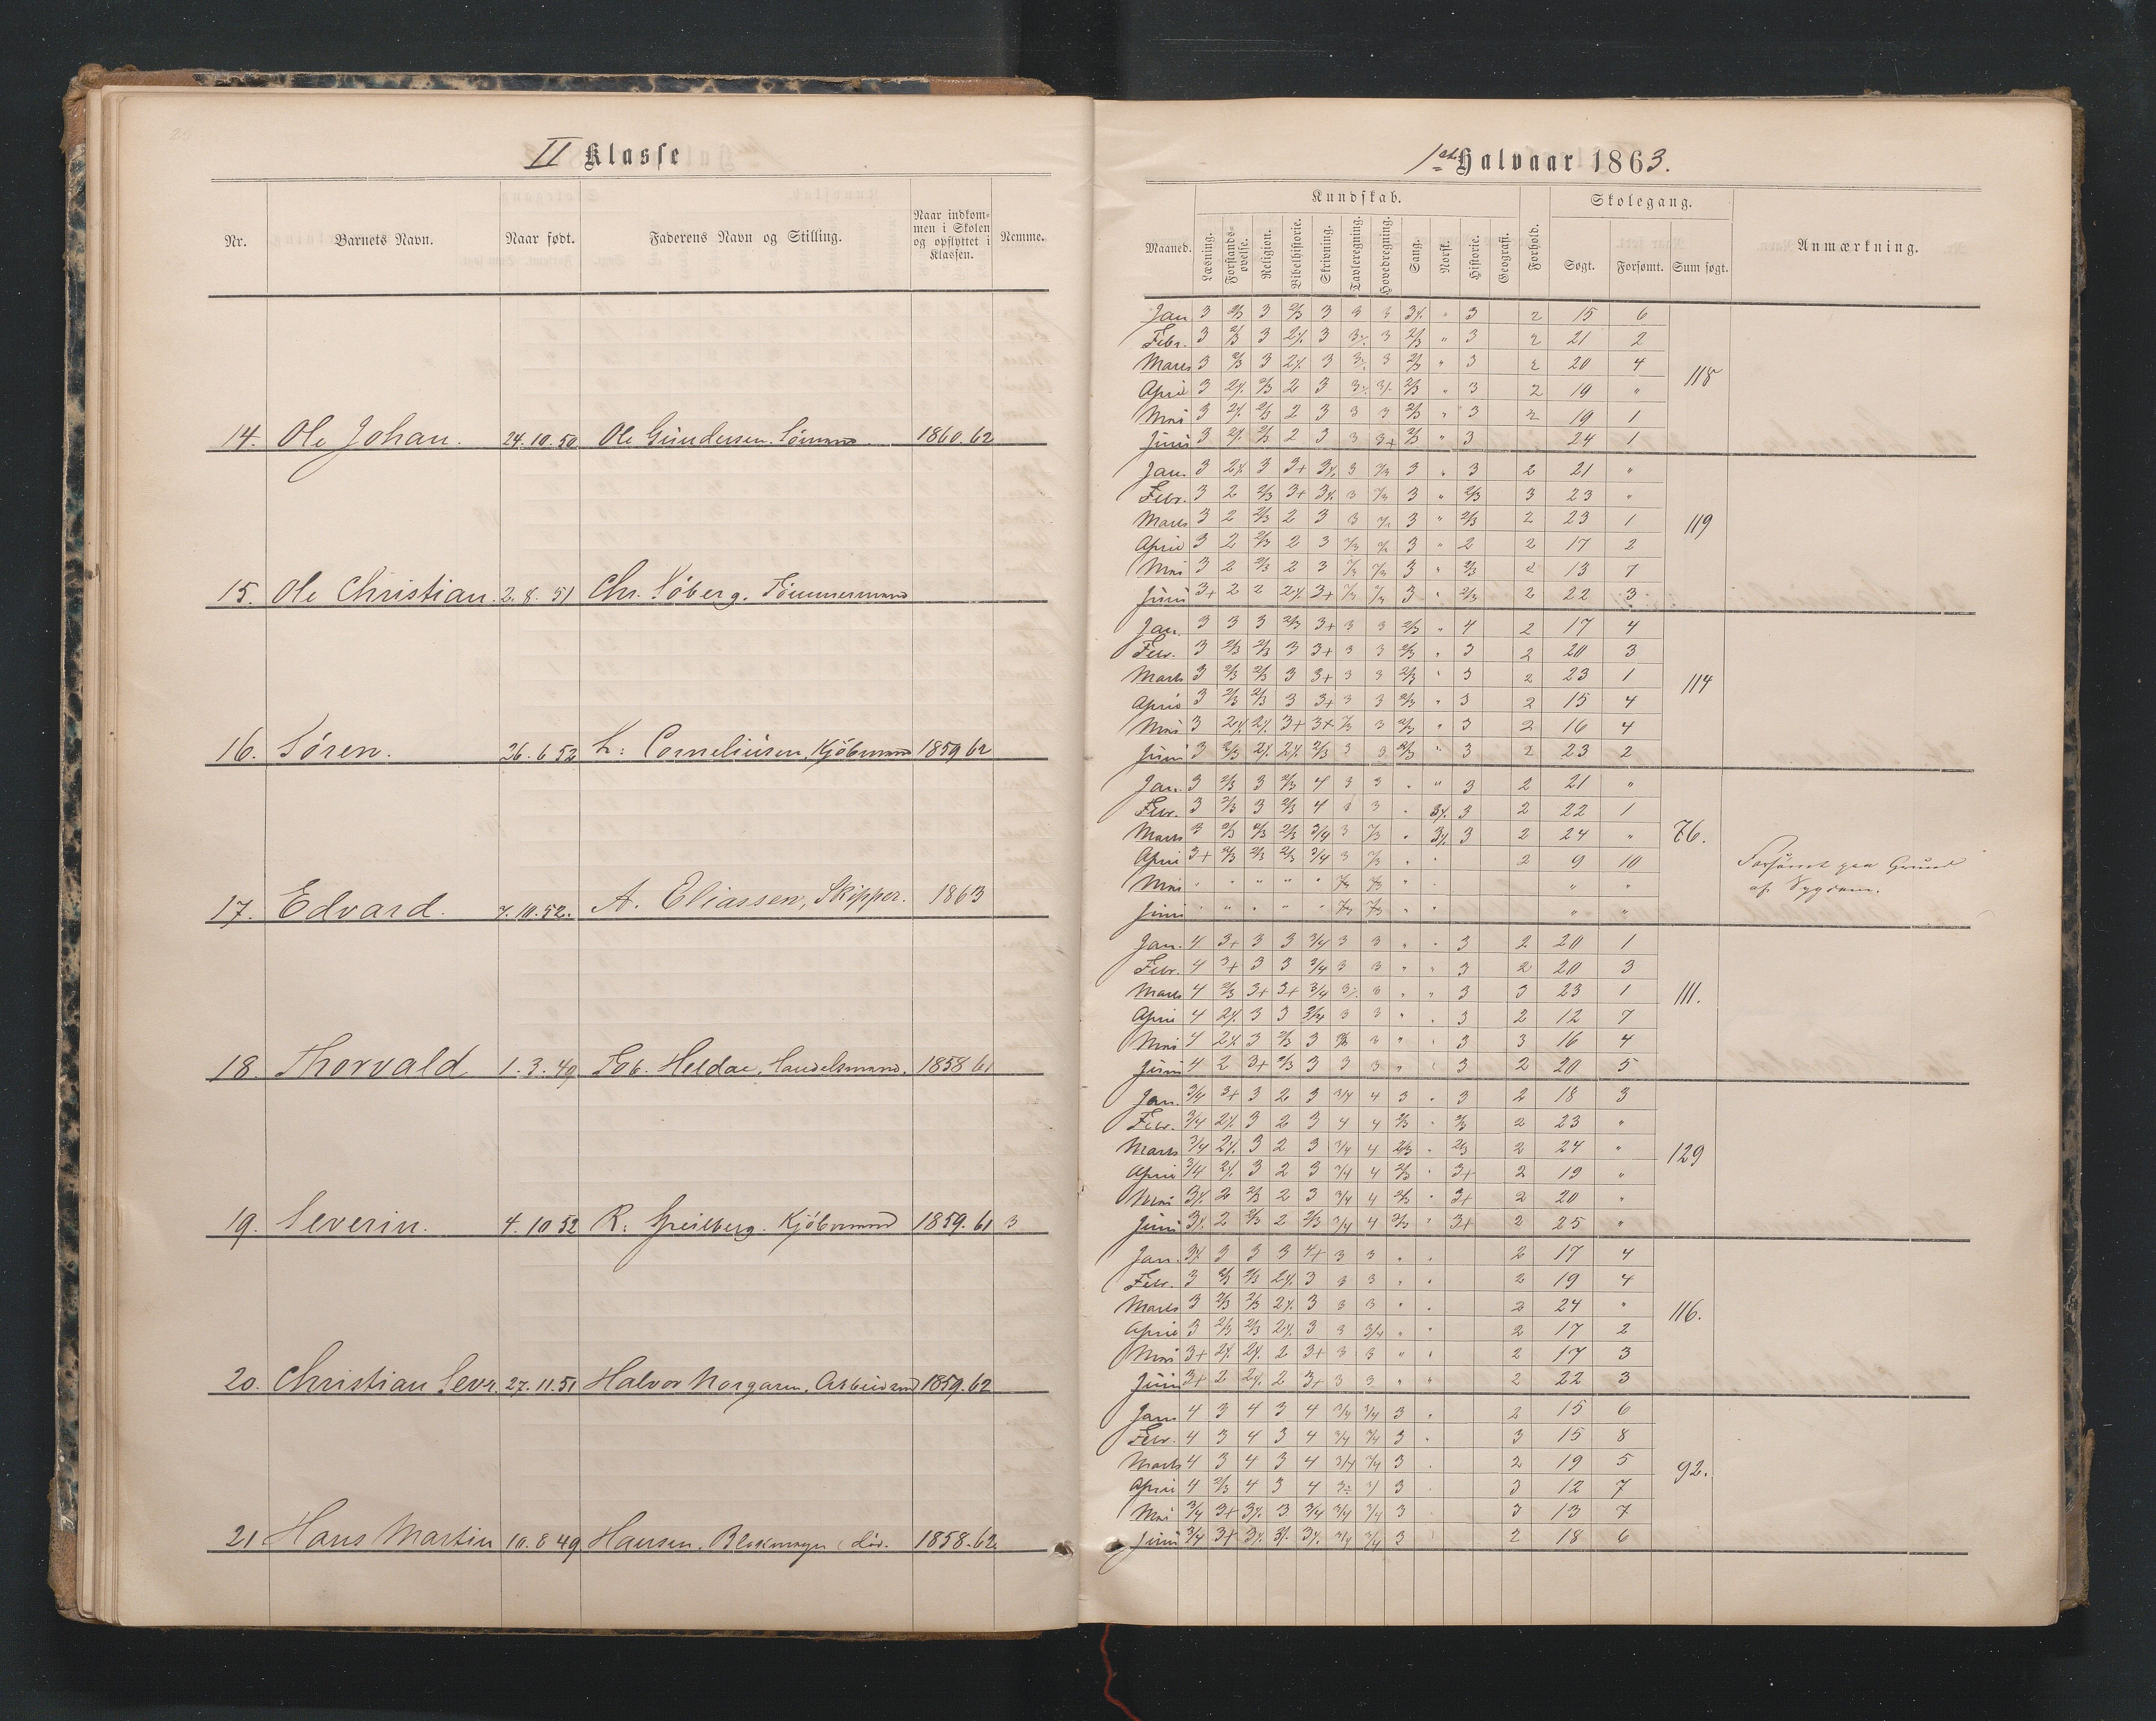 II Klasse
Nr. Barnets Navn. Naar født. Faderens Navn og Stilling. Naar indkom-
men i Skolen
og opflyttet i
Klassen. Nemme.
14. Ole Johan. 24.10.50 Ole Gundersen. Sömand. 1860.62
15. Ole Christian. 2.8.51 Chr. Söberg. Tömmermand
16. Sören. 26.6.52 Corneliusen, Kjöbmand 1859 62
17. Edvard. 7.10.52. A. Eliassen, Skipper. 1863
18. Thorvald 1.3.49 Tob. Heldae. Handelsmand. 1858 61
19. Severin. 4.10 52 R. Speilberg. Kjöbmand 1859.61 3
20. Christian Sevr. 27.11.51 Halvor Norgaren. Arbeidsmd 1859.62
21 Hans Martin 10.8 49 Hansen, Blokmager, död. 1858.62.
1ste Halvaar 1863.
Maaned. Kundskab. Forhold. Skolegang. Anmærkning.
Læsning. Forstands-
øvelse. Religion. Bibelhistorie. Skrivning. Tavleregning. Hovedregning. Sang. Norsk. Historie. Geografi. Søgt. Forsømt. Sum søgt.
Jan. 3 2/3 3 2/3 3 3 3 " 3 2 15 6
Febr. 3 2/3 3 3 3 2/3 " 3 2 21 2
Marts 3 2/3 3 3 3 2/3 " 3 2 20 4 118
April 3 2/3 2 3 2/3 " 3 2 19 "
Mai 3 2/3 2 3 3 3 2/3 " 3 2 19 1
Juni 3 2/3 2 3 3 3+ 2/3 " 3 24 1
Jan. 3 3 3+ 3 3 " 3 2 21 "
Febr. 3 2 2/3 3+ 3 3 " 2/3 3 23 "
Marts 3 2 2/3 2 3 3 3 " 2/3 2 23 1 119
April 3 2 2/3 2 3 3 " 2 2 17 2
Mai 3 2 2/3 2 3 3 " 2/3 2 13 7
Juni 3+ 2 2 3+ 3 " 2/3 2 22 3
Jan. 3 3 3 2/3 3+ 3 3 2/3 " 4 2 17 4
Febr. 3 2/3 2/3 3 3+ 3 3 2/3 " 3 2 20 3
Marts 3 2/3 2/3 3 3+ 3 3 2/3 " 3 2 23 1 114
April 3 2/3 2/3 3 3+ 3 3 2/3 " 3 2 15 4
Mai 3 3+ 3+ 3 2/3 " 3 2 16 4
Juni 3 2/3 2/3 3 3 2/3 " 3 2 23 2
Jan. 3 2/3 3 2/3 4 3 3 " " 3 2 21 "
Febr. 3 2/3 3 2/3 4 3 3 " 3 2 22 1
Marts 3 2/3 2/3 2/3 3/4 3 " 3 2 24 " 76.
April 3+ 2/3 2/3 2/3 3/4 3 " " 2 9 10 Forsömt paa Grund
Mai " " " " " " " " " af Sygdom.
Juni " " " " " " " " "
Jan. 4 3+ 3 3 3/4 3 3 " " 3 2 20 1
Febr. 4 3+ 3 3 3/4 3 3 " " 3 2 20 3
Marts 4 2/3 3+ 3+ 3/4 3 " " 3 3 23 1 111.
April 4 3 3 3/4 3 3 " " 3 2 12 7
Mai 4 3 2/3 3 3 " " 3 3 16 4
Juni 4 2 3+ 2/3 3 3 3 " " 3 2 20 5
Jan. 3/4 3+ 3 2 3 3/4 4 3 " 3 2 18 3
Febr. 3/4 3 2 3 4 4 2/3 " 2/3 2 23 "
Marts 3/4 3 2 3 3/4 4 2/3 " 2/3 2 24 " 129
April 3/4 3 2 3 3/4 4 2/3 " 3+ 2 19 "
Mai 2 2/3 2 3 3/4 4 2/3 " 3+ 2 20 "
Juni 2 2/3 2 2/3 3/4 4 2/3 " 3+ 2 25 "
Jan. 3 3 3 4+ 3 3 " " 2 17 4
Febr. 3 2/3 2/3 3 3 3 " " 2 19 4
Marts 3 2/3 2/3 3 3 3 " " 2 24 " 116.
April 3 2/3 2/3 3 3 3/4 " " 2 17 2
Mai 3+ 2 3+ 3 3 " " 2 17 3
Juni 3+ 2 2 3+ 3 3 " " 2 22 3
Jan. 4 3 4 3 4 3/4 3/4 3 " 2 15 6
Febr. 4 3 4 3 4 3/4 3/4 3 " 3 15 8
Marts 4 3 4 3 4 3/4 3/4 3 " 2 19 5 92.
April 4 2/3 4 3 4 3 3 12 7
Mai 3/4 3+ 3 3/4 3/4 3/4 3 3 13 7
Juni 3/4 3+ 3/4 3/4 3 2 18 6